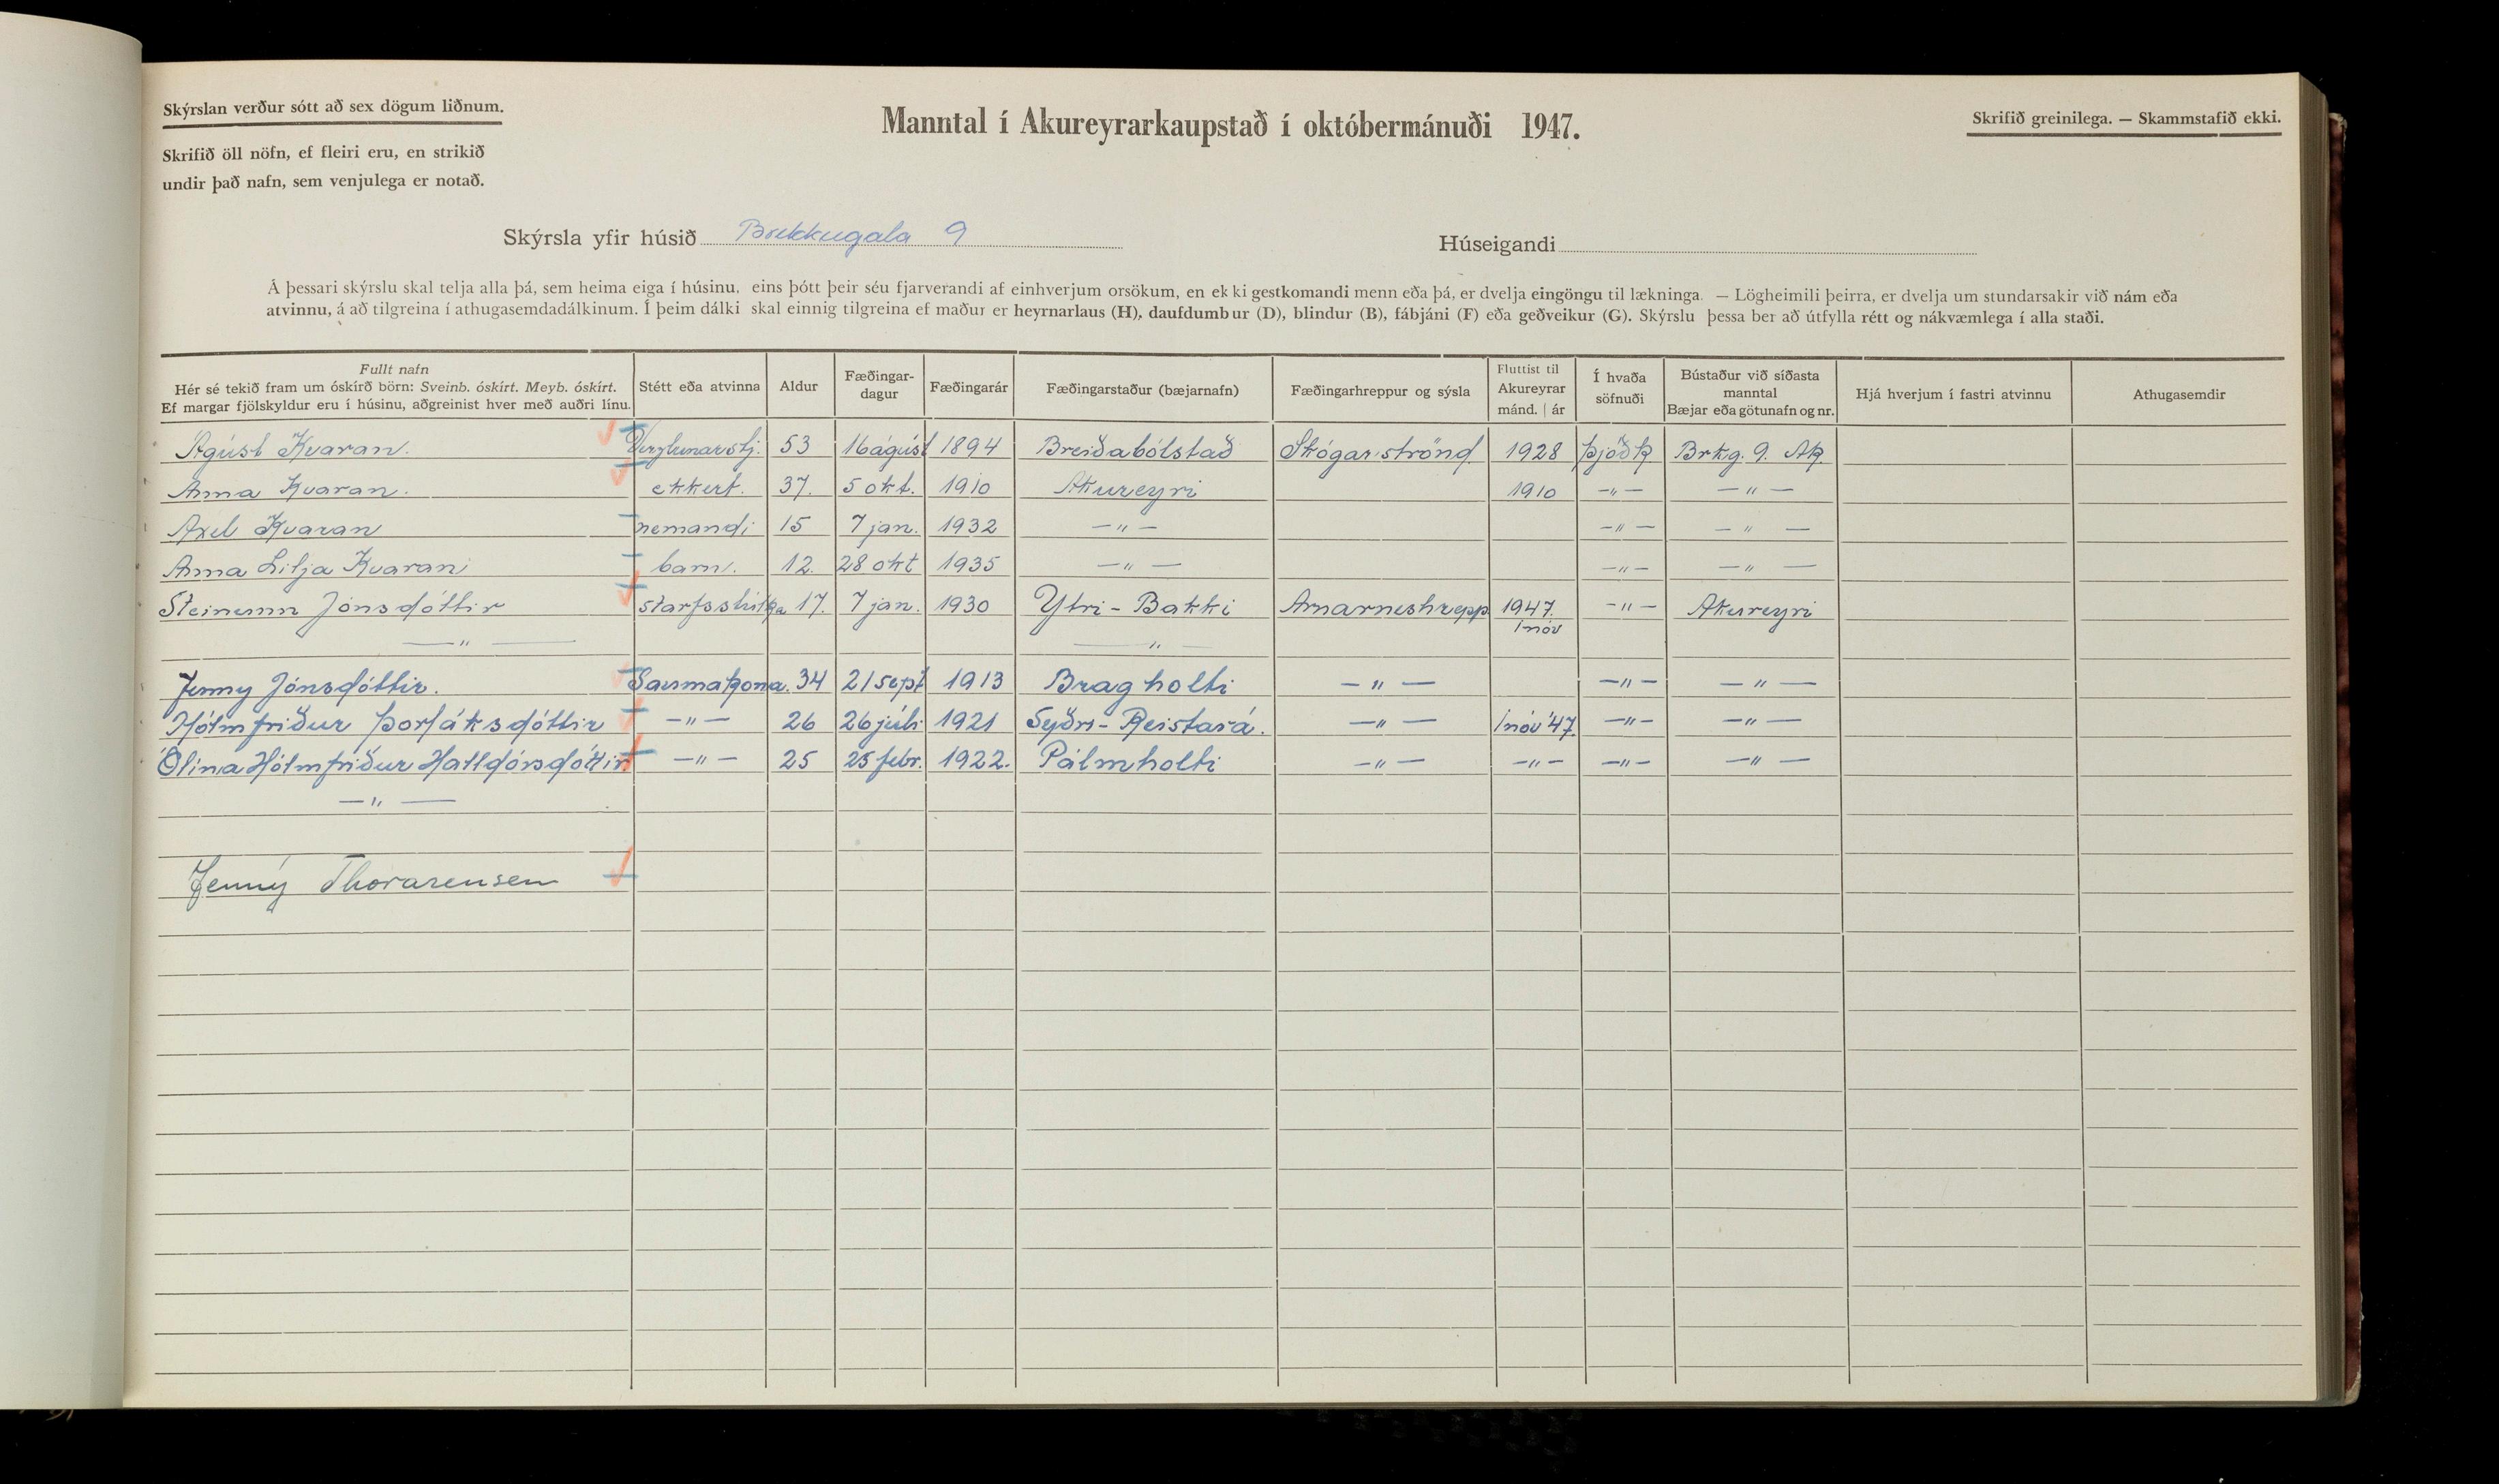 Skýrslan verður sótt að sex dögum liðnum.
Skrifið öll nöfn, ef fleiri eru, en strikið
undir það nafn, sem venjulega er notað.
Manntal í Akureyrarkaupstað í októbermánuði 1947.
Skrifið greinilega. — Skammstafið ekki.
Skýrsla yfir húsið Brekkugata 9
Húseigandi
Á þessari skýrslu skal telja alla þá, sem heima eiga í húsinu, eins þótt þeir séu fjarverandi af einhverjum orsökum, en ekki gestkomandi menn eða þá, er dvelja eingöngu til lækninga. — Lögheimili þeirra, er dvelja um stundarsakir við nám eða
atvinnu, á að tilgreina í athugasemdadálkinum. Í þeim dálki skal einnig tilgreina ef maður er heyrnarlaus (H), daufdumbur (D), blindur (B), fábjáni (F) eða geðveikur (G). Skýrslu þessa ber að útfylla rétt og nákvæmlega í alla staði.
Fullt nafn
Hér sé tekið fram um óskírð börn: Sveinb. óskírt. Meyb. óskírt.
Ef margar fjölskyldur eru í húsinu, aðgreinist hver með auðri línu.
Stétt eða atvinna
Aldur
Fæðingar-
dagur
Fæðingarár
Fæðingarstaður (bæjarnafn)
Fæðingarhreppur og sýsla
Fluttist til
Akureyrar
mánd. | ár
Í hvaða
söfnuði
Bústaður við síðasta
manntal
Bæjar eða götunafn og nr.
Hjá hverjum í fastri atvinnu
Athugasemdir
Ágúst Kvaran. Verzlunarstj. 53 16 ágúst 1894 Breiðabólstað Skógarströnd 1928 Þjóðk Brkg. 9. Ak
Anna Kvaran. ekkert. 37. 5 okt. 1910 Akureyri 1910 —"— —"—
Axel Kvaran nemandi 15 7 jan. 1932 —"— —"— —"—
Anna Lilja Kvaran barn. 12. 28 okt 1935 —"— —"— —"—
Steinunn Jónsdóttir starfsstúlka 17. 7 jan. 1930 Ytri-Bakki Arnarneshrepp 1947. —"— Akureyri
1 nóv
—"— —"—
Jenny Jónsdóttir. Saumakona. 34 21 sept 1913 Bragholti —"— —"— —"—
Hólmfriður Þorláksdóttir —"— 26 26 júli 1921 Syðri-Reistará. —"— 1 nóv '47. —"— —"—
Ólina Hólmfriður Halldórsdóttir —"— 25 25 febr. 1922. Pálmholti —"— —"— —"— —"—
—"—
Jenný Thorarensen